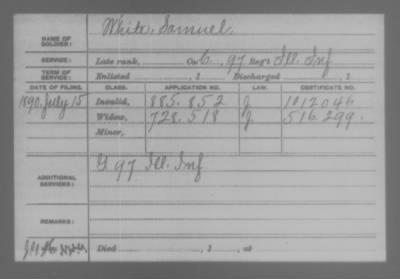 NAME OF SOLDIER: White, Samuel.
SERVICE: Late rank, Co. C, 97 Reg't Ill. Inf
TERM OF SERVICE: Enlisted , 1 Discharged , 1
DATE OF FILING. CLASS. APPLICATION NO. LAW. CERTIFICATE NO.
1890, July 15 Invalid, 885.852 J. 1012046
Widow, 728.518 J. 516.299.
Minor,
ADDITIONAL SERVICES: G 97 Ill. Inf
REMARKS:
Died , 1 , at